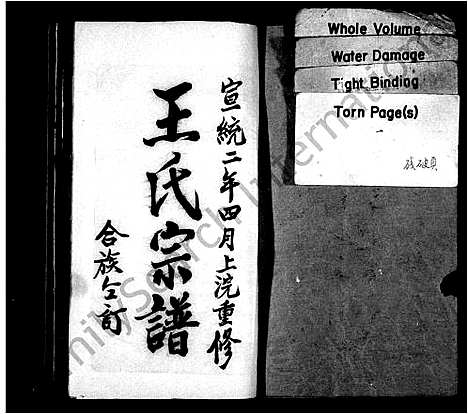 宣統二年四月上浣重修
王氏宗譜
合族公訂
Whole Volume
Water Damage
Tight Binding
Torn Page(s)
残破頁
FamilySearch International